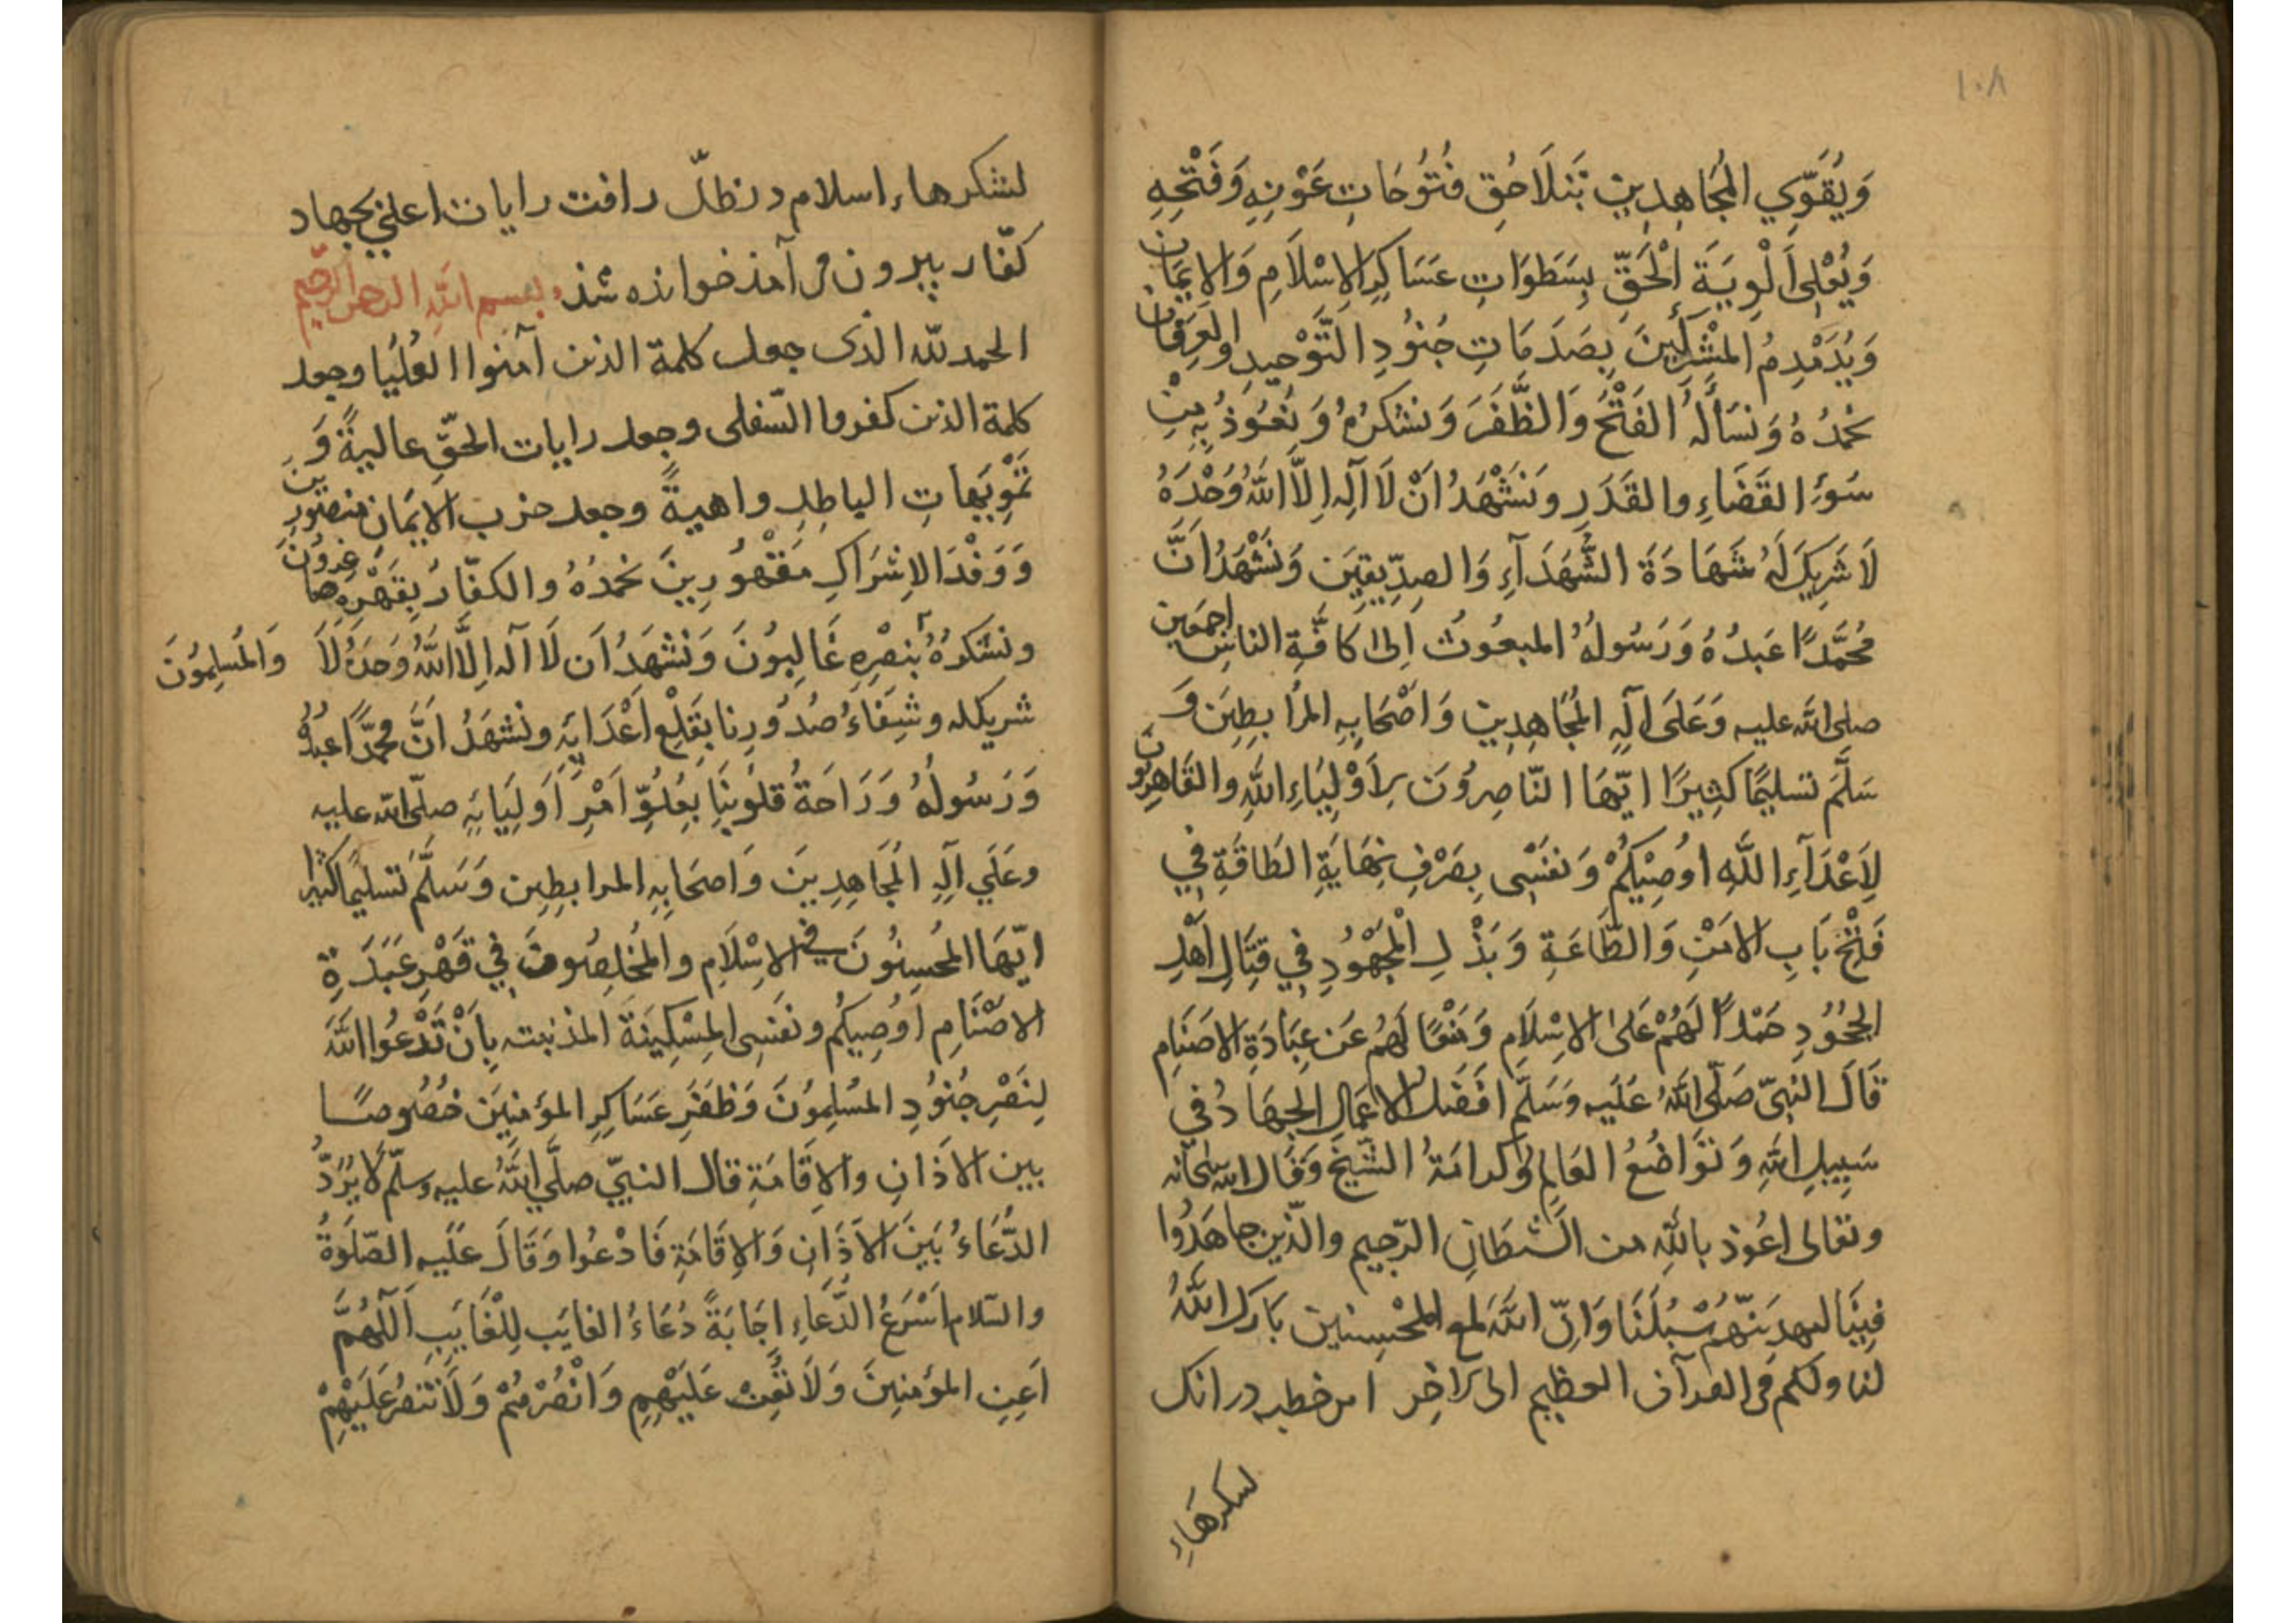 ١٠٨
وَيُقَوِّي المُجَاهِدِين بِتَلَاحُقِ فُتُوحَاتِ عَوْنِهِ وَفَتْحِهِ
وَيُعْلِي اَلْوِيَةَ الْحَقِّ بِسَطَوَاتِ عَسَاكِرِ الاِسْلَامِ وَالايمَان
وَيُدَمْدِمُ المُشْرِكِينَ بِصَدَمَاتِ جُنُودِ التَّوْحِيدِ والعِرفَان
نَحمَدُهُ وَنَسَأَلُهُ الفَتْحَ وَالظَّفَرَ وَنَشكُرُهُ وَنَعُوذُ بِهِ مِنْ
سُوءِ القَضَاءِ والقَدَرِ ونَشْهَدُ اَنْ لَا اَلِهَ اِلَّا اللهُ وَحْدَهُ
لَا شَرِيكَ لَهُ شَهَادَةَ الشُّهَدَآءِ وَالصِدِّيقِينَ وَنَشْهَدُ اَنَّ
مُحَمَّدًا عَبدُهُ وَرَسُولُهُ المبعُوثُ اِلىٰ كَافَّةِ الناسِ اجمَعِين
صلى الله عليه وَعَلَى آلِهِ المُجَاهِدِين وَاَصْحَابِهِ المُرَابِطِينَ وَ
سَلَّمَ تسليمًا كثِيرًا ايّهَا النّاصِرُونَ لِاَوْلِيَاءِ اللهِ والقَاهِرُون
لِاَعْدَآءِ اللَّهِ اُوصِيْكُمْ وَنفَسْى بِصَرْفِ نِهَايَةِ الطَاقَةِ فِي
فَتْحِ بَابِ الامْنِ وَالطَّاعَةِ وَبَذْلِ الْمَجْهُودِ فِي قِتَالِ اَهْلِ
الجُحُودِ حَمْلاً لَهُمْ عَلىٰ الاِسْلَامِ وَمَنْعًا لَهُمُ عَن عِبَادَةِ الاَصنَامِ
قَالَ النَبيّ صَلّى اللهُ عَلَيه وَسَلَّم افضَل الاعمَالِ الجِهَادُ في
سَبِيلِ اللهِ وَتَوَاضُعُ العَالِمِ وَكرامَةُ الشّيخِ وَقَالَ الله سبحَانه
وتعَالى اعُوذ باللهِ من الشَّيطَانِ الرّجيم والّذين جاهَدُوا
فِينَا لنهدِيَنّهُم سُبُلَنَا وَاِنّ اللهَ لمَعَ المُحْسِنين بَارَكَ اللهُ
لنا ولكم فى القرآن العظيم الى آخِر اين خطبه در انك
لشكرهَاءِ
لشكرهاء اسلام در ظلّ رافت رايات اعلي بجهاد
كفّار بيرون مى آمذ خوانده شذ بسم الله الرحمن الرحيم
الحمد لله الذى جعل كلمة الذين آمنوا العُليَا وجعل
كلمة الذين كفروا السّفلى وجعل رايات الحقِّ عاليةً وَ
تَمْوِيهَاتِ الباطِلِ واهيةً وجعل حزب الايمَان منصُورِينَ
وَوَفْدَ الاِشرَاكِ مَقْهُورِينَ نحمَدُهُ والكفّارُ بِقَهْرِهِ صَاغِرُونَ
ونشكرُهُ بنصْرِهِ غَالِبُونَ وَنَشْهَدُ اَن لَا اله اِلَّا اللهُ وَحدَهُ لَا
وَالمُسلِمُونَ
شريك له وشِفَاءُ صُدُورِنا بِقَلْعِ اَعْدَائِهِ ونَشهَدُ اَنَّ مُحمَّدًا عَبدُهُ
وَرَسُولُهُ وَرَاحَةُ قلُوبِنَا بِعُلُوِّ اَمْرِ اَوْلِيَائِهِ صلّى الله عليه
وعَلَي آلِهِ المُجَاهِدِينَ وَاَصحَابِهِ المرابطِين وَسَلَّمَ تَسليمًا كثيرًا
ايّهَا المُحسِنُونَ فى الاِسْلَامِ والمُخلِصُونَ فِي قَهْرِ عَبَدَةِ
الاصْنَامِ اُوصِيكُم ونفسِى المِسْكِينَةَ المذنبته بِاَنْ تَدْعُوا اللهَ
لِنَصْرِ جُنُودِ المُسْلِمُونَ وَظَفَرِ عَسَاكِرِ المؤمنِينَ خُصُوصًا
بين الاَذانِ والاِقَامَةِ قال النبيّ صلَّي اللهُ عليه وسلّم لا يُرَدُّ
الدُّعَاءُ بَينَ الاَذَانِ وَالاِقَامَةِ فَادْعُوا وَقَالَ عَلَيه الصّلَوةُ
والسّلام اَسْرَعُ الدُّعَاءِ اِجَابَةً دُعَاءُ الغايَب لِلْغَايَبِ اَللّهُمَّ
اَعِنِ المؤمنِينَ وَلَا تُعِنْ عَلَيْهِمِ وَانْصُرْهُمْ وَلَا تَنْصُر عَلَيْهِمْ